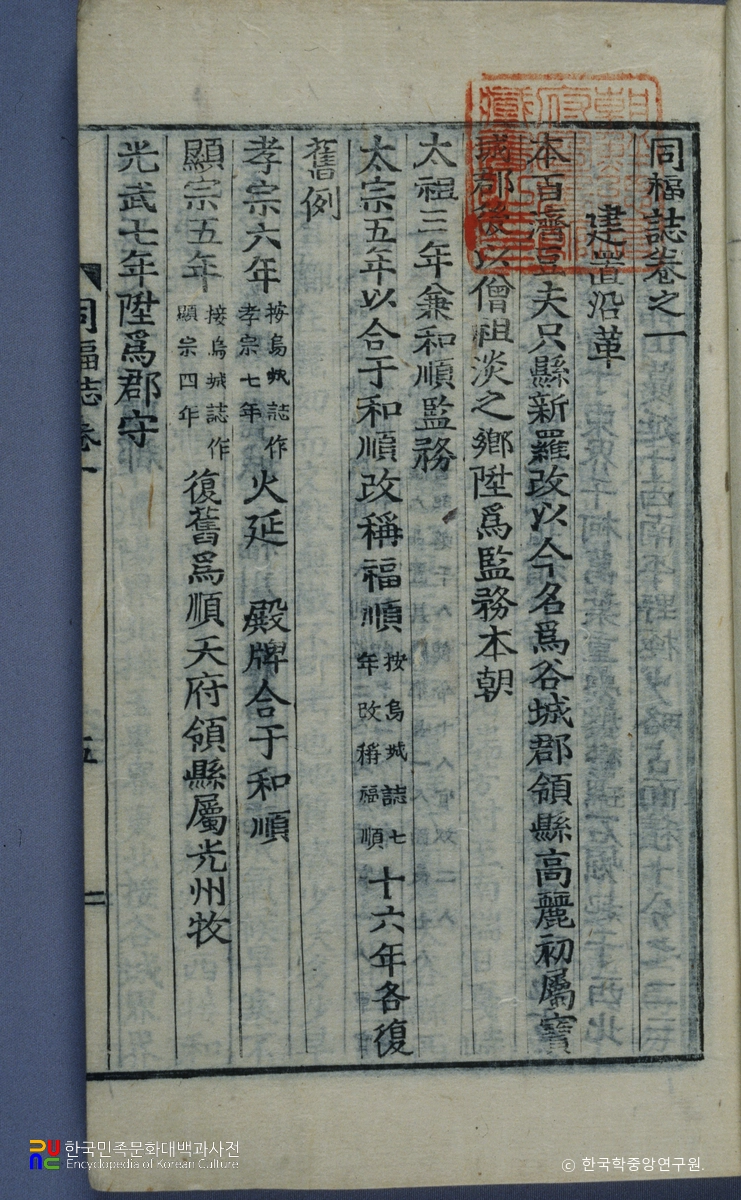 同福誌卷之一
建置沿革
本百濟豆夫只縣新羅改以今名爲谷城郡領縣高麗初屬寶
城郡後以僧祖淡之鄉陞爲監務本朝
太祖三年兼和順監務
太宗五年以合于和順改稱福順
按烏城誌七
年改稱福順
十六年各復
舊例
孝宗六年
按烏城誌作
孝宗七年
火延 殿牌合于和順
顯宗五年
按烏城誌作
顯宗四年
復舊爲順天府領縣屬光州牧
光武七年陞爲郡守
同福誌卷一
한국민족문화대백과사전
Encyclopedia of Korean Culture
© 한국학중앙연구원.